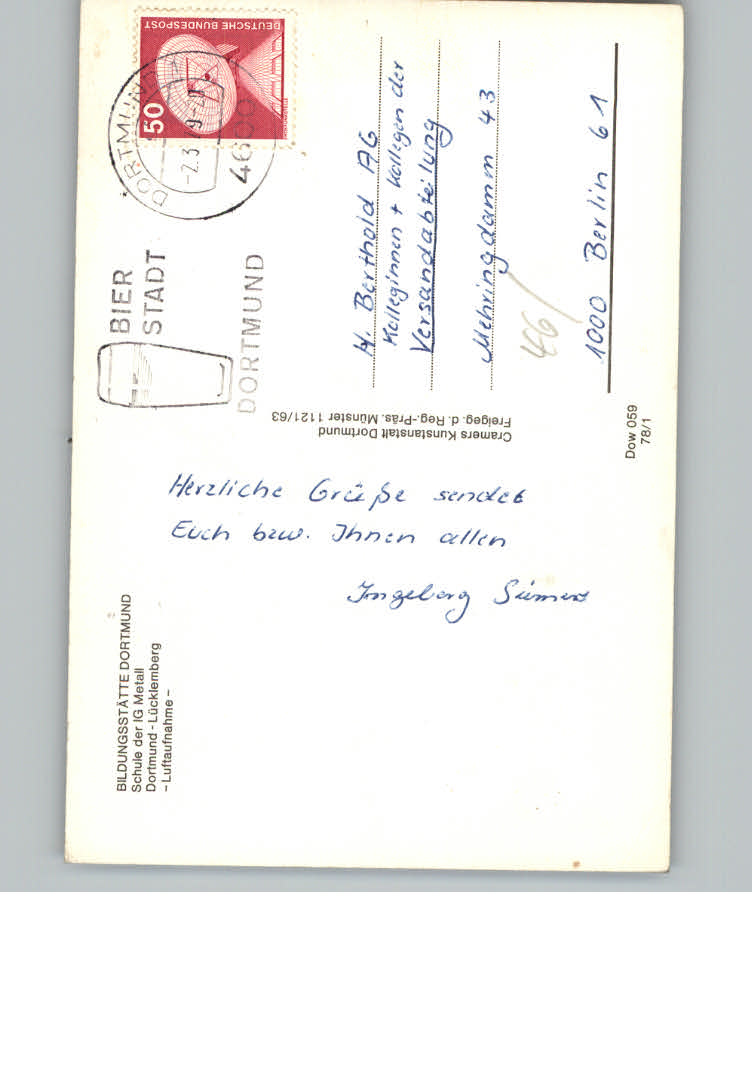 BILDUNGSSTÄTTE DORTMUND
Schule der IG Metall
Dortmund - Lücklemberg
– Luftaufnahme –
Herzliche Grüße sendet
Euch bzw. Ihnen allen
Ingeborg
Cramers Kunstanstalt Dortmund
Freigeg. d. Reg.-Präs. Münster 1121/63
BIER
STADT
DORTMUND
DORTMUND
-2.3
4600
DEUTSCHE BUNDESPOST
50
H. Berthold AG
Kolleginnen + Kollegen der
Versandabteilung
Mehringdamm 43
46/
1000 Berlin 61
Dow 059
78/1